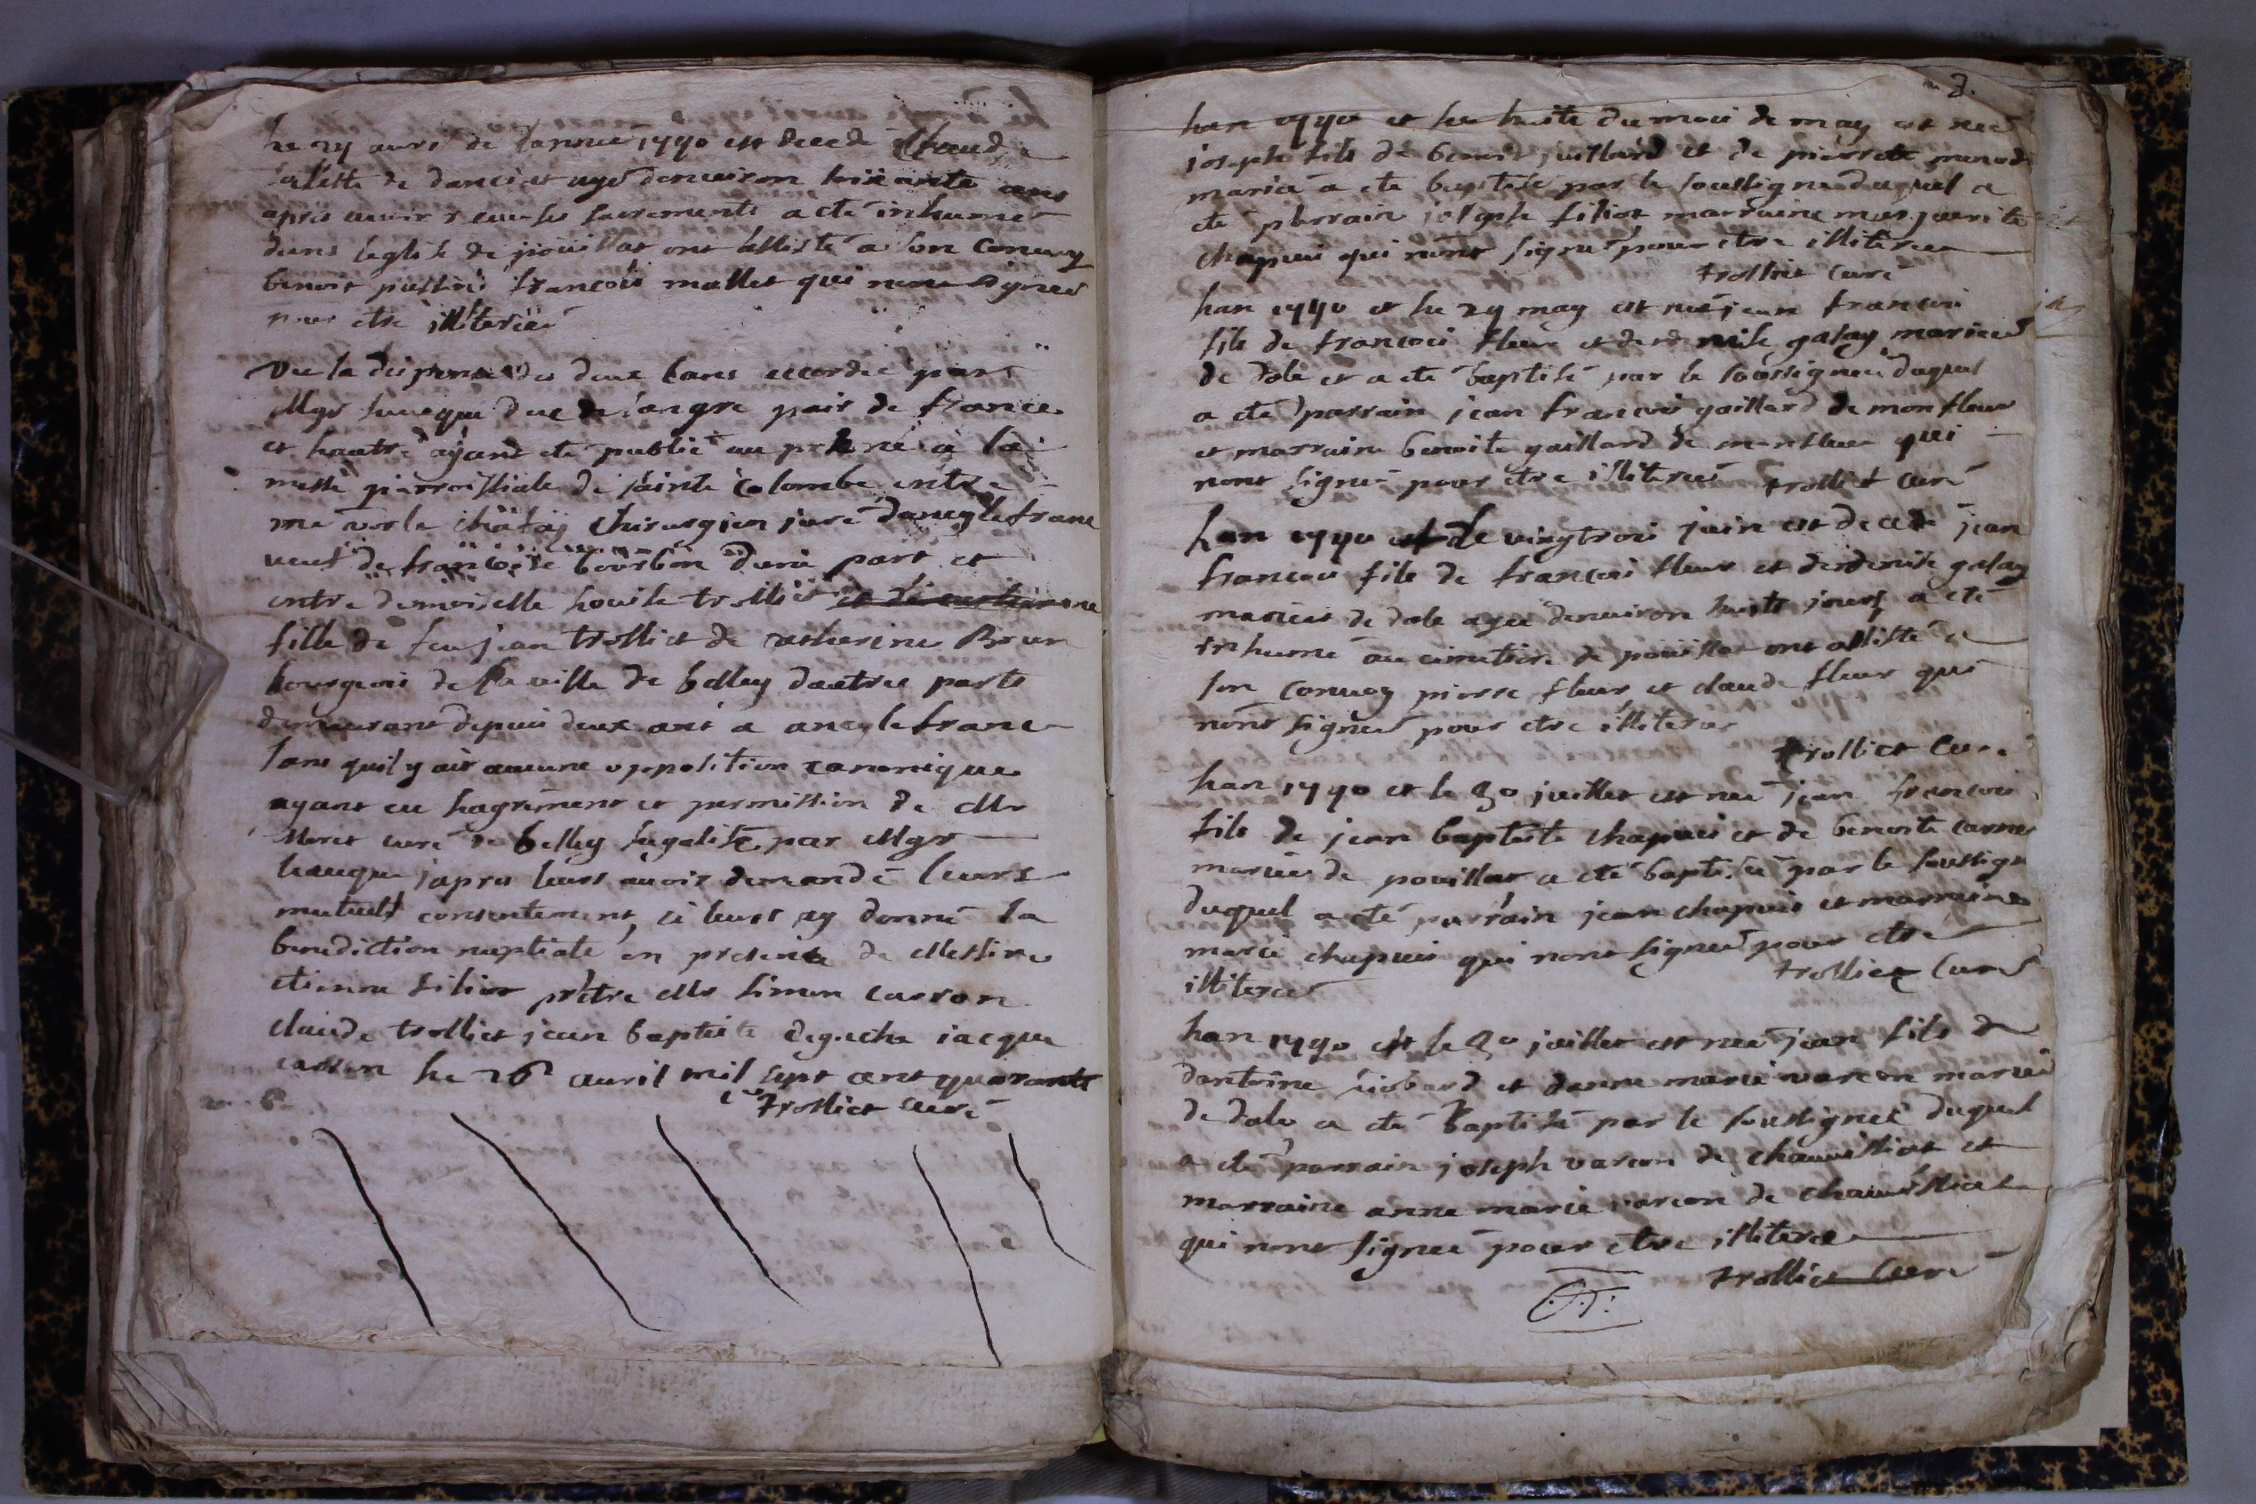 he 27 auri de lannee 1740 est decede Claude
de danciat agé denuiron soixante ans
apres auoir receu les sacrements a eté inhumé
dans leglise de poüillat ont assisté a son Conuoy
benoit françois mallet qui nont signes
pour etre illiterée
Vue la dispense des deux bans accordée par
Mgr leueque duc de langre pair de france
et hautre ayant eté publié au prone a la
messe parroissiale de sainte Colombe entre
me vorle châtay chirurgien juré dancy le franc
veuf de françoise bourbon dune part et
entre demoiselle houise trolliet
fille de feu jean trolliet de catherine Brun
bourgeois de la ville de belley dautres parts
demeurant depuis deux ans a ancy le franc
sans quil y ait aucune opposition canonique
ayant eu hagrément et permission de Mr
Moret curé de belley legalisé par Mgr
leueque japres leurs auoir demandé leurs
mutuels consentement, je leurs ay donné la
benediction nuptiale en presence de Messire
etienne filiot prêtre Mr simon carron
claude trolliet jean baptiste degache iacque
he 26 auril mil sept cent quarante
trolliet curé
3.
han 1740 et he huite du moi de may est neé
joseph fils de benoit juillard et de pierrete
marié a ete baptisé par le soussigné duquel a
eté parrain joseph filiot marraine marguerite
chapuis qui nont signé pour etre illiterée
trolliet curé
han 1740 et he 29 may est neé jean françois
fils de françois fleur et de denise galay mariees
de dole et a eté baptisé par le soussigneé duquel
a eté parrain jean françois gaillard de monfleur
et marraine benoite gaillard de monfleur qui
nont signeé pour etre illiterée trolliet curé
han 1740 et le vingtroi juin est decede jean
francois fils de francois fleur et de denise galay
mariees de dole agée denuiron huits jours a eté
inhumé au cimetiere de poüillat ont assisté a
son Conuoy pierre fleur et claude fleur qui
nont signés pour etre illiteres
trolliet curé
han 1740 et le 30 juillet est neé jean francois
fils de jean baptiste chapuis et de benoite
mariés de pouillat a eté baptiseé par le soussigné
duquel a eté parrain jean chapuis et marraine
marie chapuis qui nont signeé pour etre
illiterées trolliet Curé
han 1740 et le 30 juillet est neé jean fils de
dantoine et danne marie varcon mariés
de dole a eté baptisé par le soussigneé duquel
a eté parrain joseph varcon de et
marraine anne marie varcon de
qui nont signeé pour etre illiterée
trolliet Curé